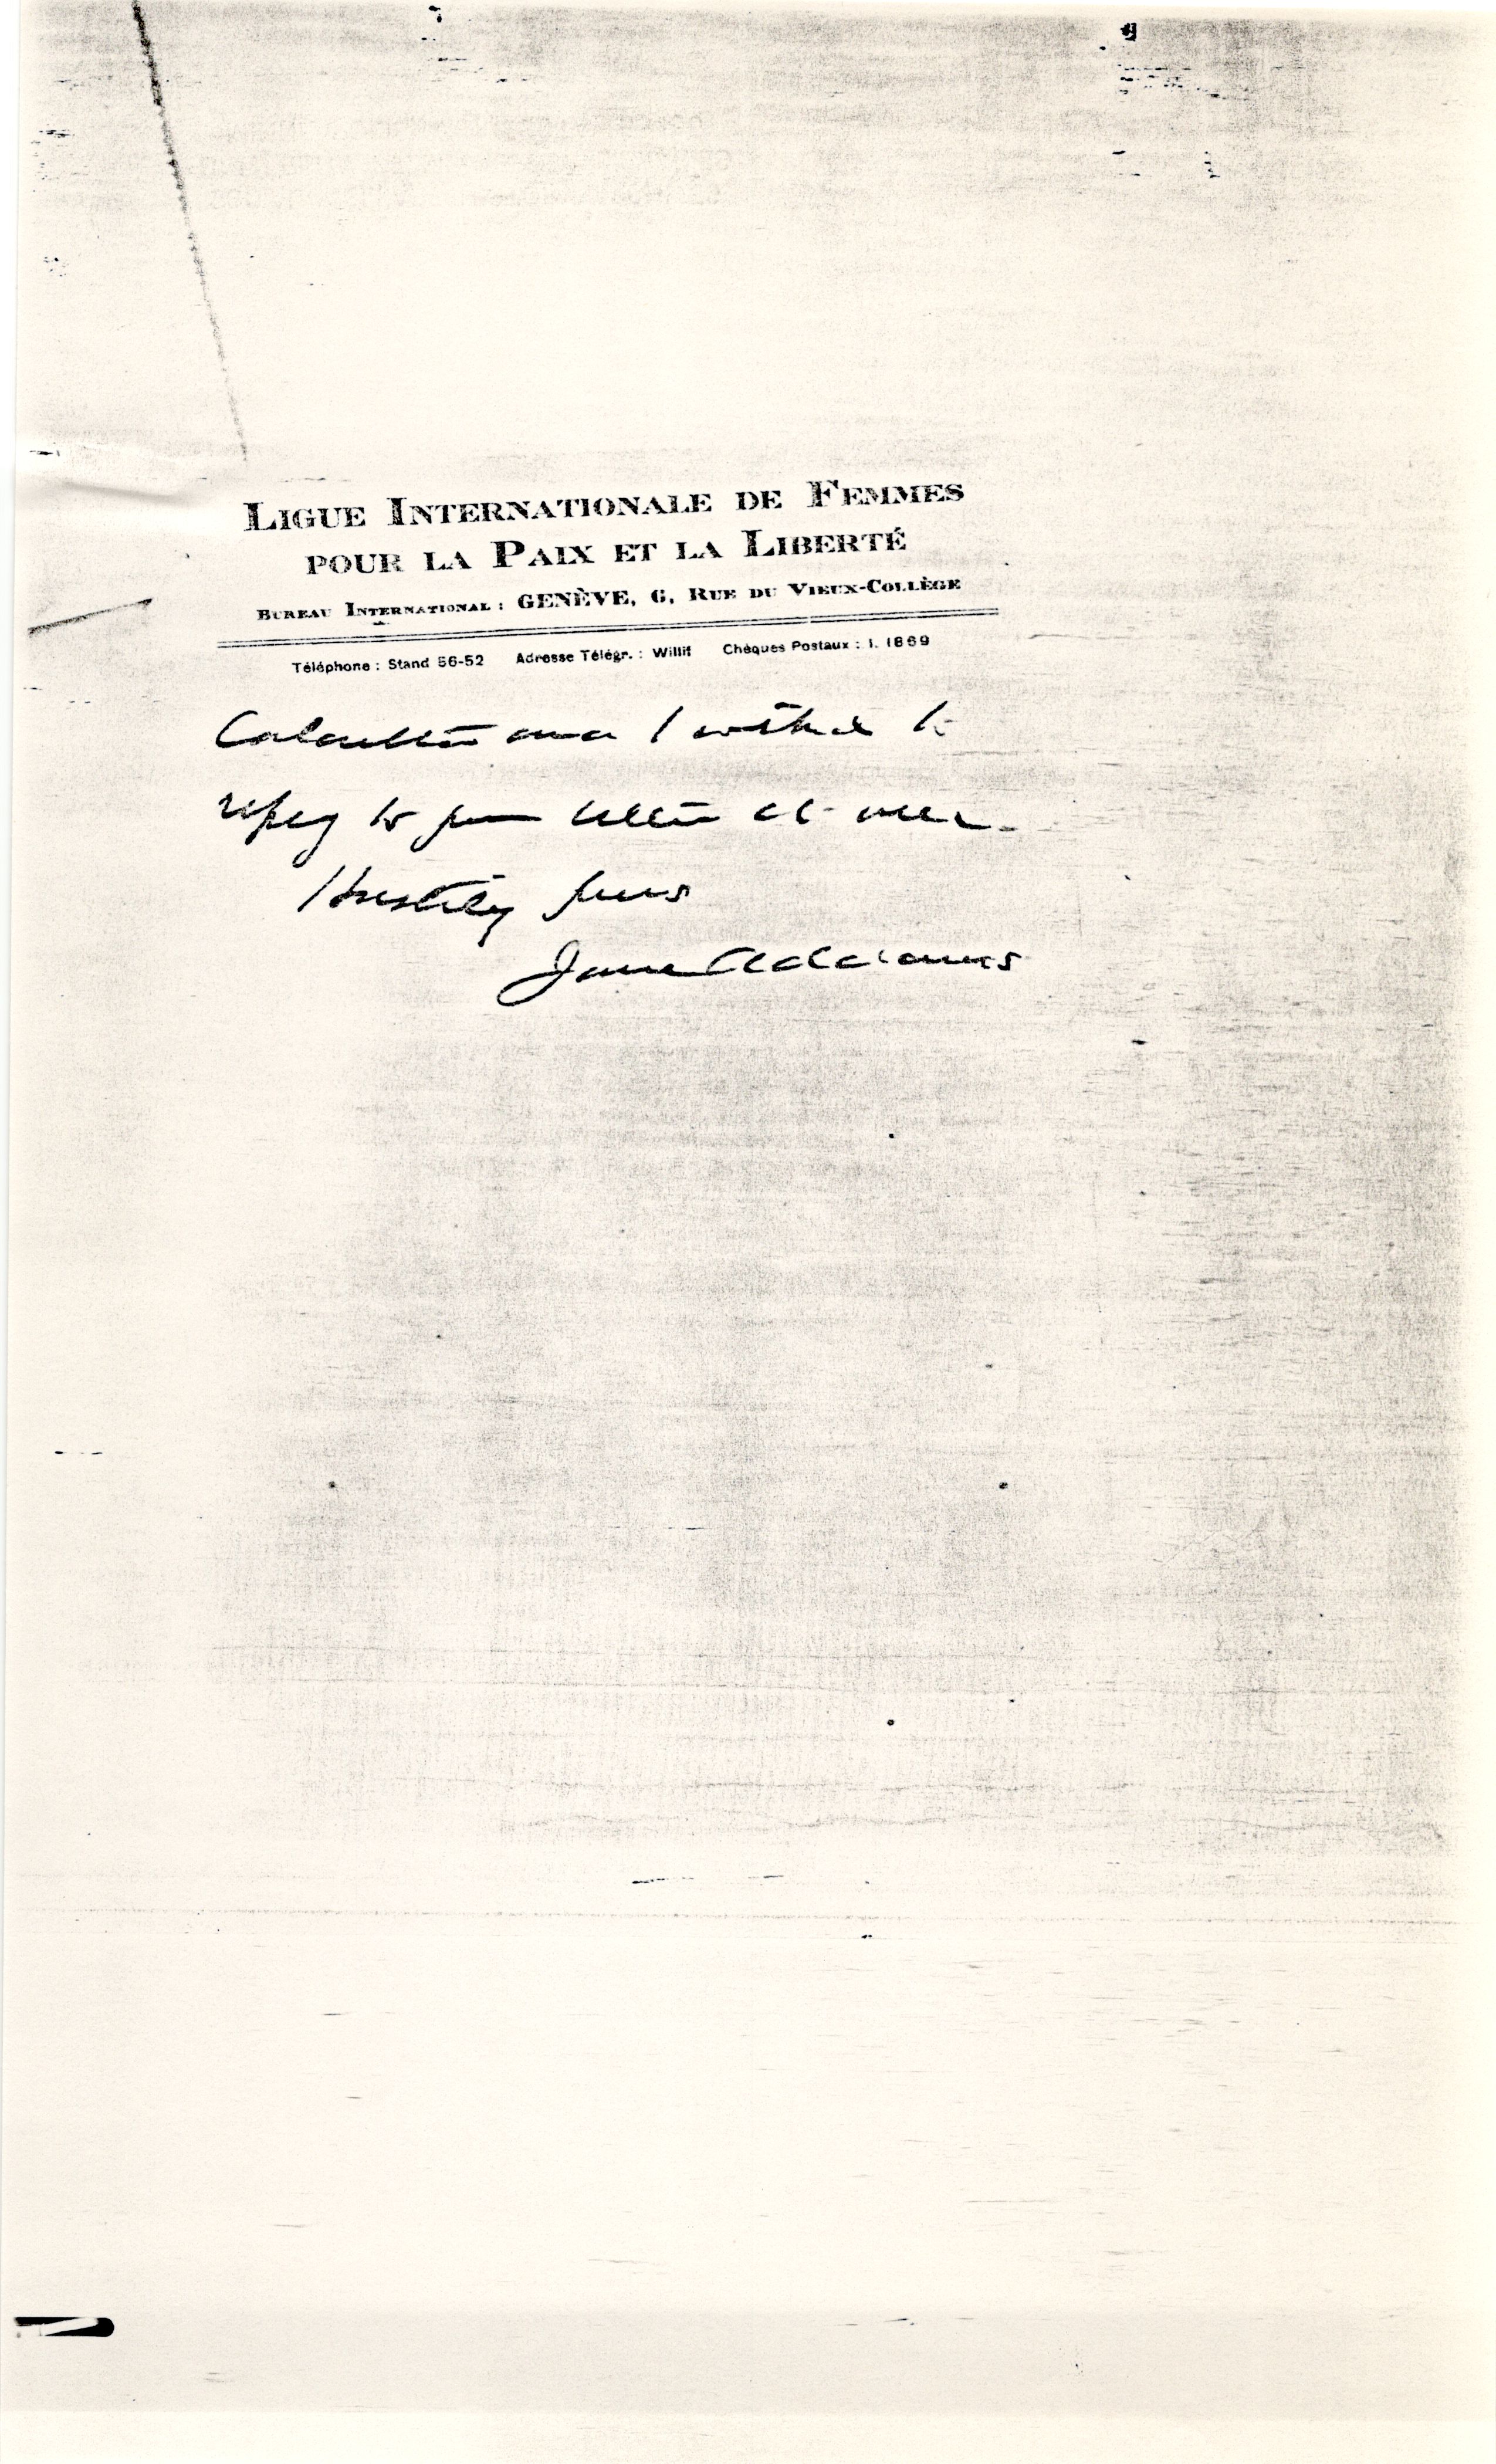 LIGUE INTERNATIONALE DE FEMMES
POUR LA PAIX ET LA LIBERTÉ
BUREAU INTERNATIONAL : GENÈVE, 6, RUE DU VIEUX-COLLÈGE
Téléphone : Stand 56-52 Adresse Télégr. : Willif Chèques Postaux : I. 1869
Calcutta and I wished to
reply to your letter at once.
Hastily yours
Jane Addams